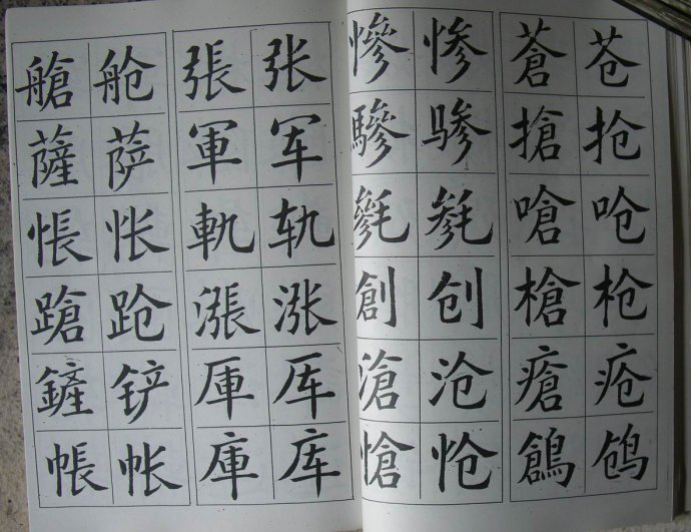 艙 舱 張 张 慘 惨 蒼 苍
薩 萨 軍 军 驂 骖 搶 抢
悵 怅 軌 轨 毿 毵 嗆 呛
蹌 跄 漲 涨 創 创 槍 枪
鏟 铲 厙 厍 滄 沧 瘡 疮
帳 帐 庫 库 愴 怆 鶬 鸧